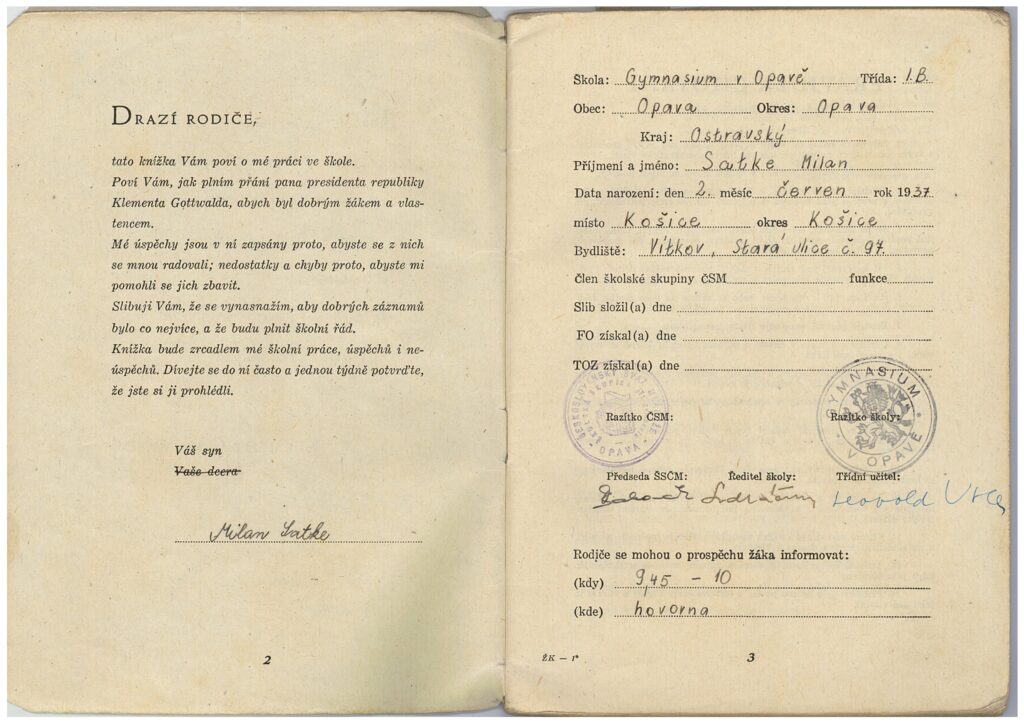 DRAZÍ RODIČE,
tato knížka Vám poví o mé práci ve škole.
Poví Vám, jak plním přání pana presidenta republiky
Klementa Gottwalda, abych byl dobrým žákem a vlas-
tencem.
Mé úspěchy jsou v ní zapsány proto, abyste se z nich
se mnou radovali; nedostatky a chyby proto, abyste mi
pomohli se jich zbavit.
Slibuji Vám, že se vynasnažím, aby dobrých záznamů
bylo co nejvíce, a že budu plnit školní řád.
Knížka bude zrcadlem mé školní práce, úspěchů i ne-
úspěchů. Dívejte se do ní často a jednou týdně potvrďte,
že jste si ji prohlédli.
Váš syn
Vaše dcera
Milan Satke
2
Škola: Gymnasium v Opavě Třída: I.B.
Obec: Opava Okres: Opava
Kraj: Ostravský
Příjmení a jméno: Satke Milan
Data narození: den 2. měsíc červen rok 1937
místo Košice okres Košice
Bydliště: Vítkov, Stará ulice č. 97.
Člen školské skupiny ČSM funkce
Slib složil(a) dne
FO získal(a) dne
TOZ získal(a) dne
GYMNASIUM V OPAVĚ
OPAVA
Razítko ČSM: Razítko školy:
Předseda ŠSČM: Ředitel školy: Třídní učitel:
Leopold
Rodiče se mohou o prospěchu žáka informovat:
(kdy) 9,45 - 10
(kde) hovorna
ŽK — 1*
3